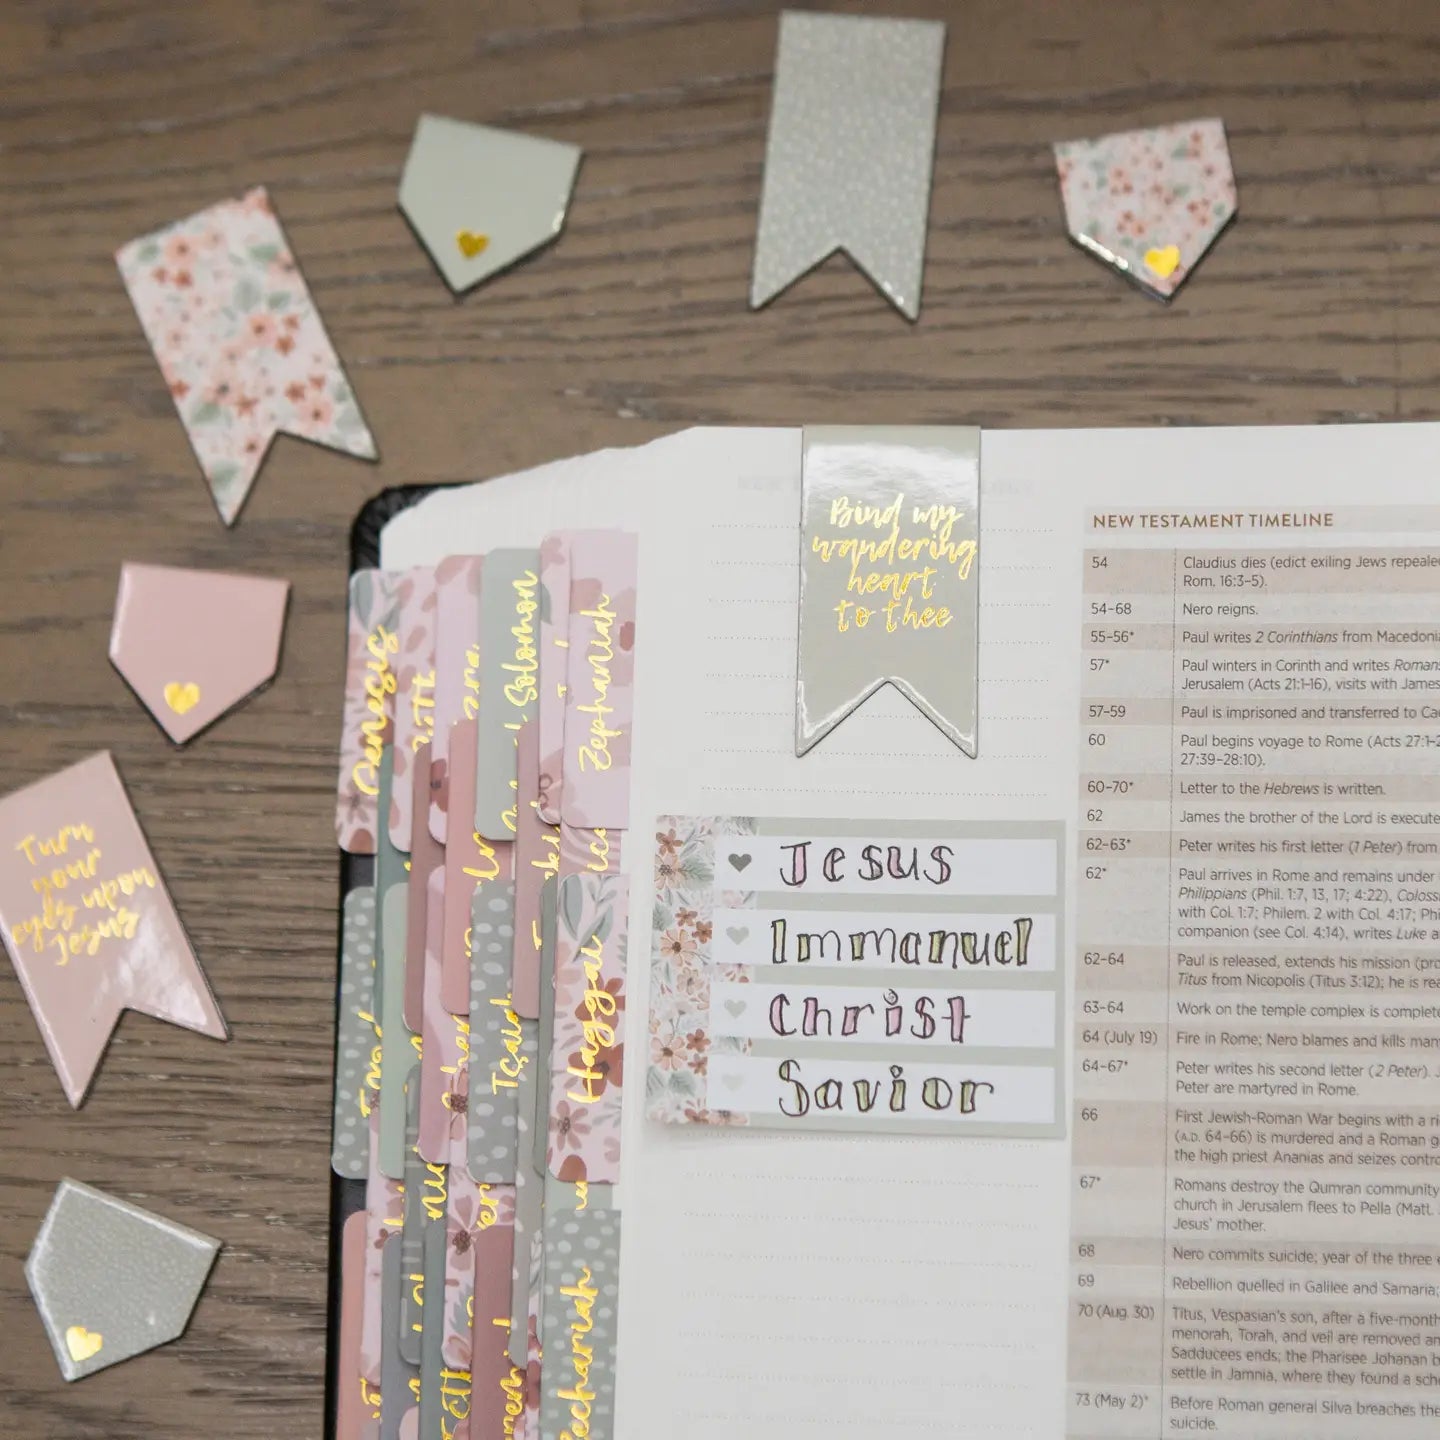 Bind my
wandering
heart
to thee
Turn
your
eyes upon
Jesus
Genesis
Ruth
Solomon
Zephaniah
Haggai
Zechariah
Jesus
Immanuel
Christ
Savior
NEW TESTAMENT TIMELINE
54 Claudius dies (edict exiling Jews
Rom. 16:3–5).
54–68 Nero reigns.
55–56* Paul writes 2 Corinthians from
57* Paul winters in Corinth and writes
Jerusalem (Acts 21:1–16), visits with James
57–59 Paul is imprisoned and transferred to
60 Paul begins voyage to Rome (Acts
27:39–28:10).
60–70* Letter to the Hebrews is written.
62 James the brother of the Lord is
62–63* Peter writes his first letter (1 Peter) from
62* Paul arrives in Rome and remains under
Philippians (Phil. 1:7, 13, 17; 4:22),
with Col. 1:7; Philem. 2 with Col. 4:17;
companion (see Col. 4:14), writes Luke
62–64 Paul is released, extends his mission
Titus from Nicopolis (Titus 3:12); he is
63–64 Work on the temple complex is
64 (July 19) Fire in Rome; Nero blames and kills
64–67* Peter writes his second letter (2 Peter).
Peter are martyred in Rome.
66 First Jewish-Roman War begins with a
(A.D. 64–66) is murdered and a Roman
the high priest Ananias and seizes
67* Romans destroy the Qumran community
church in Jerusalem flees to Pella (Matt.
Jesus' mother.
68 Nero commits suicide; year of the three
69 Rebellion quelled in Galilee and Samaria;
70 (Aug. 30) Titus, Vespasian's son, after a
menorah, Torah, and veil are removed
Sadducees ends; the Pharisee Johanan
settle in Jamnia, where they found a
73 (May 2)* Before Roman general Silva breaches the
suicide.